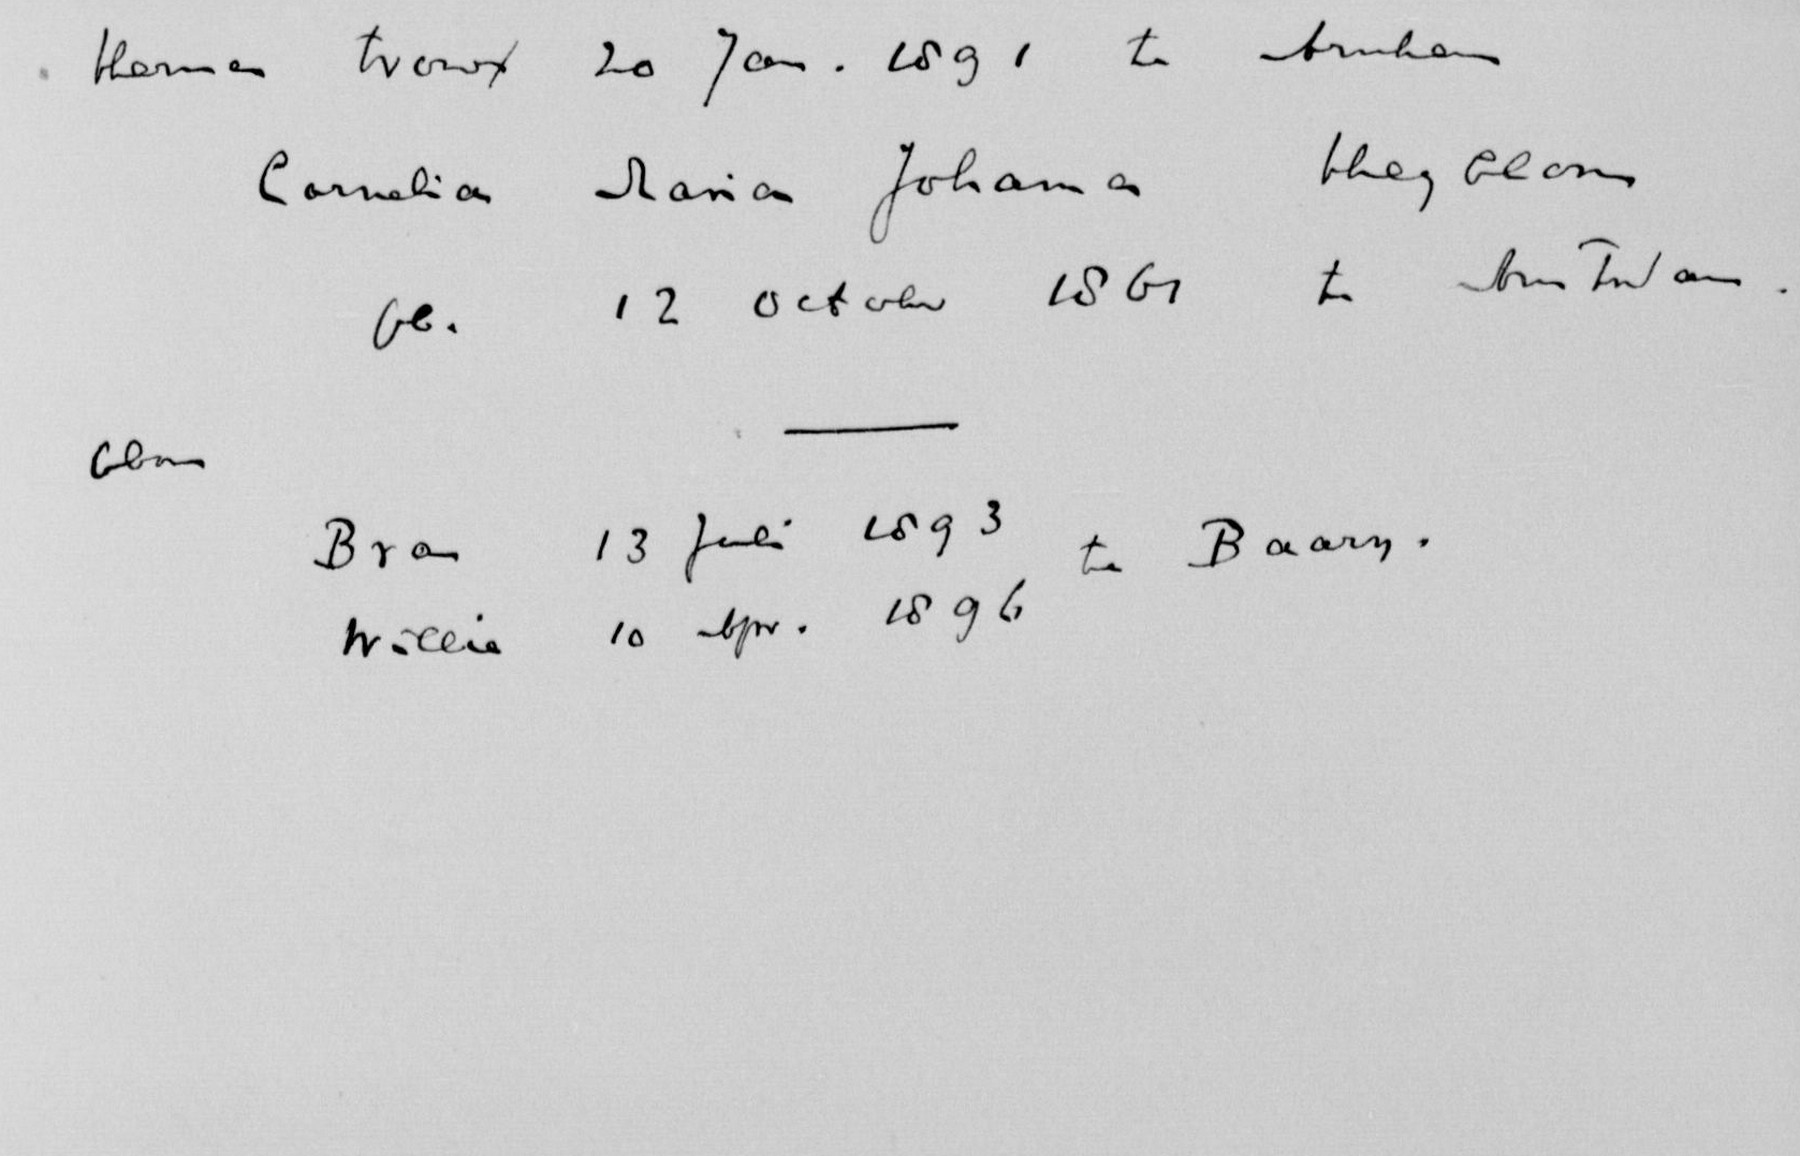 Herman trouwt 20 Jan. 1891 te Arnhem
Cornelia Maria Johanna Heyblom
geb. 12 October 1861 te Amsterdam.
Geboren
Bram 13 Juli 1893 te Baarn.
Willie 10 Apr. 1896